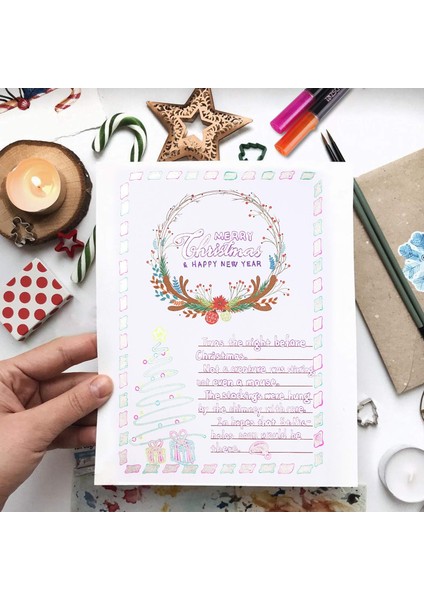 MERRY
Christmas
& HAPPY NEW YEAR
Twas the night before
Christmas.
Not a creature was stiring
not even a mouse.
The stockings were hung
by the chimney with care.
In hopes that St. Nic
would be
there.